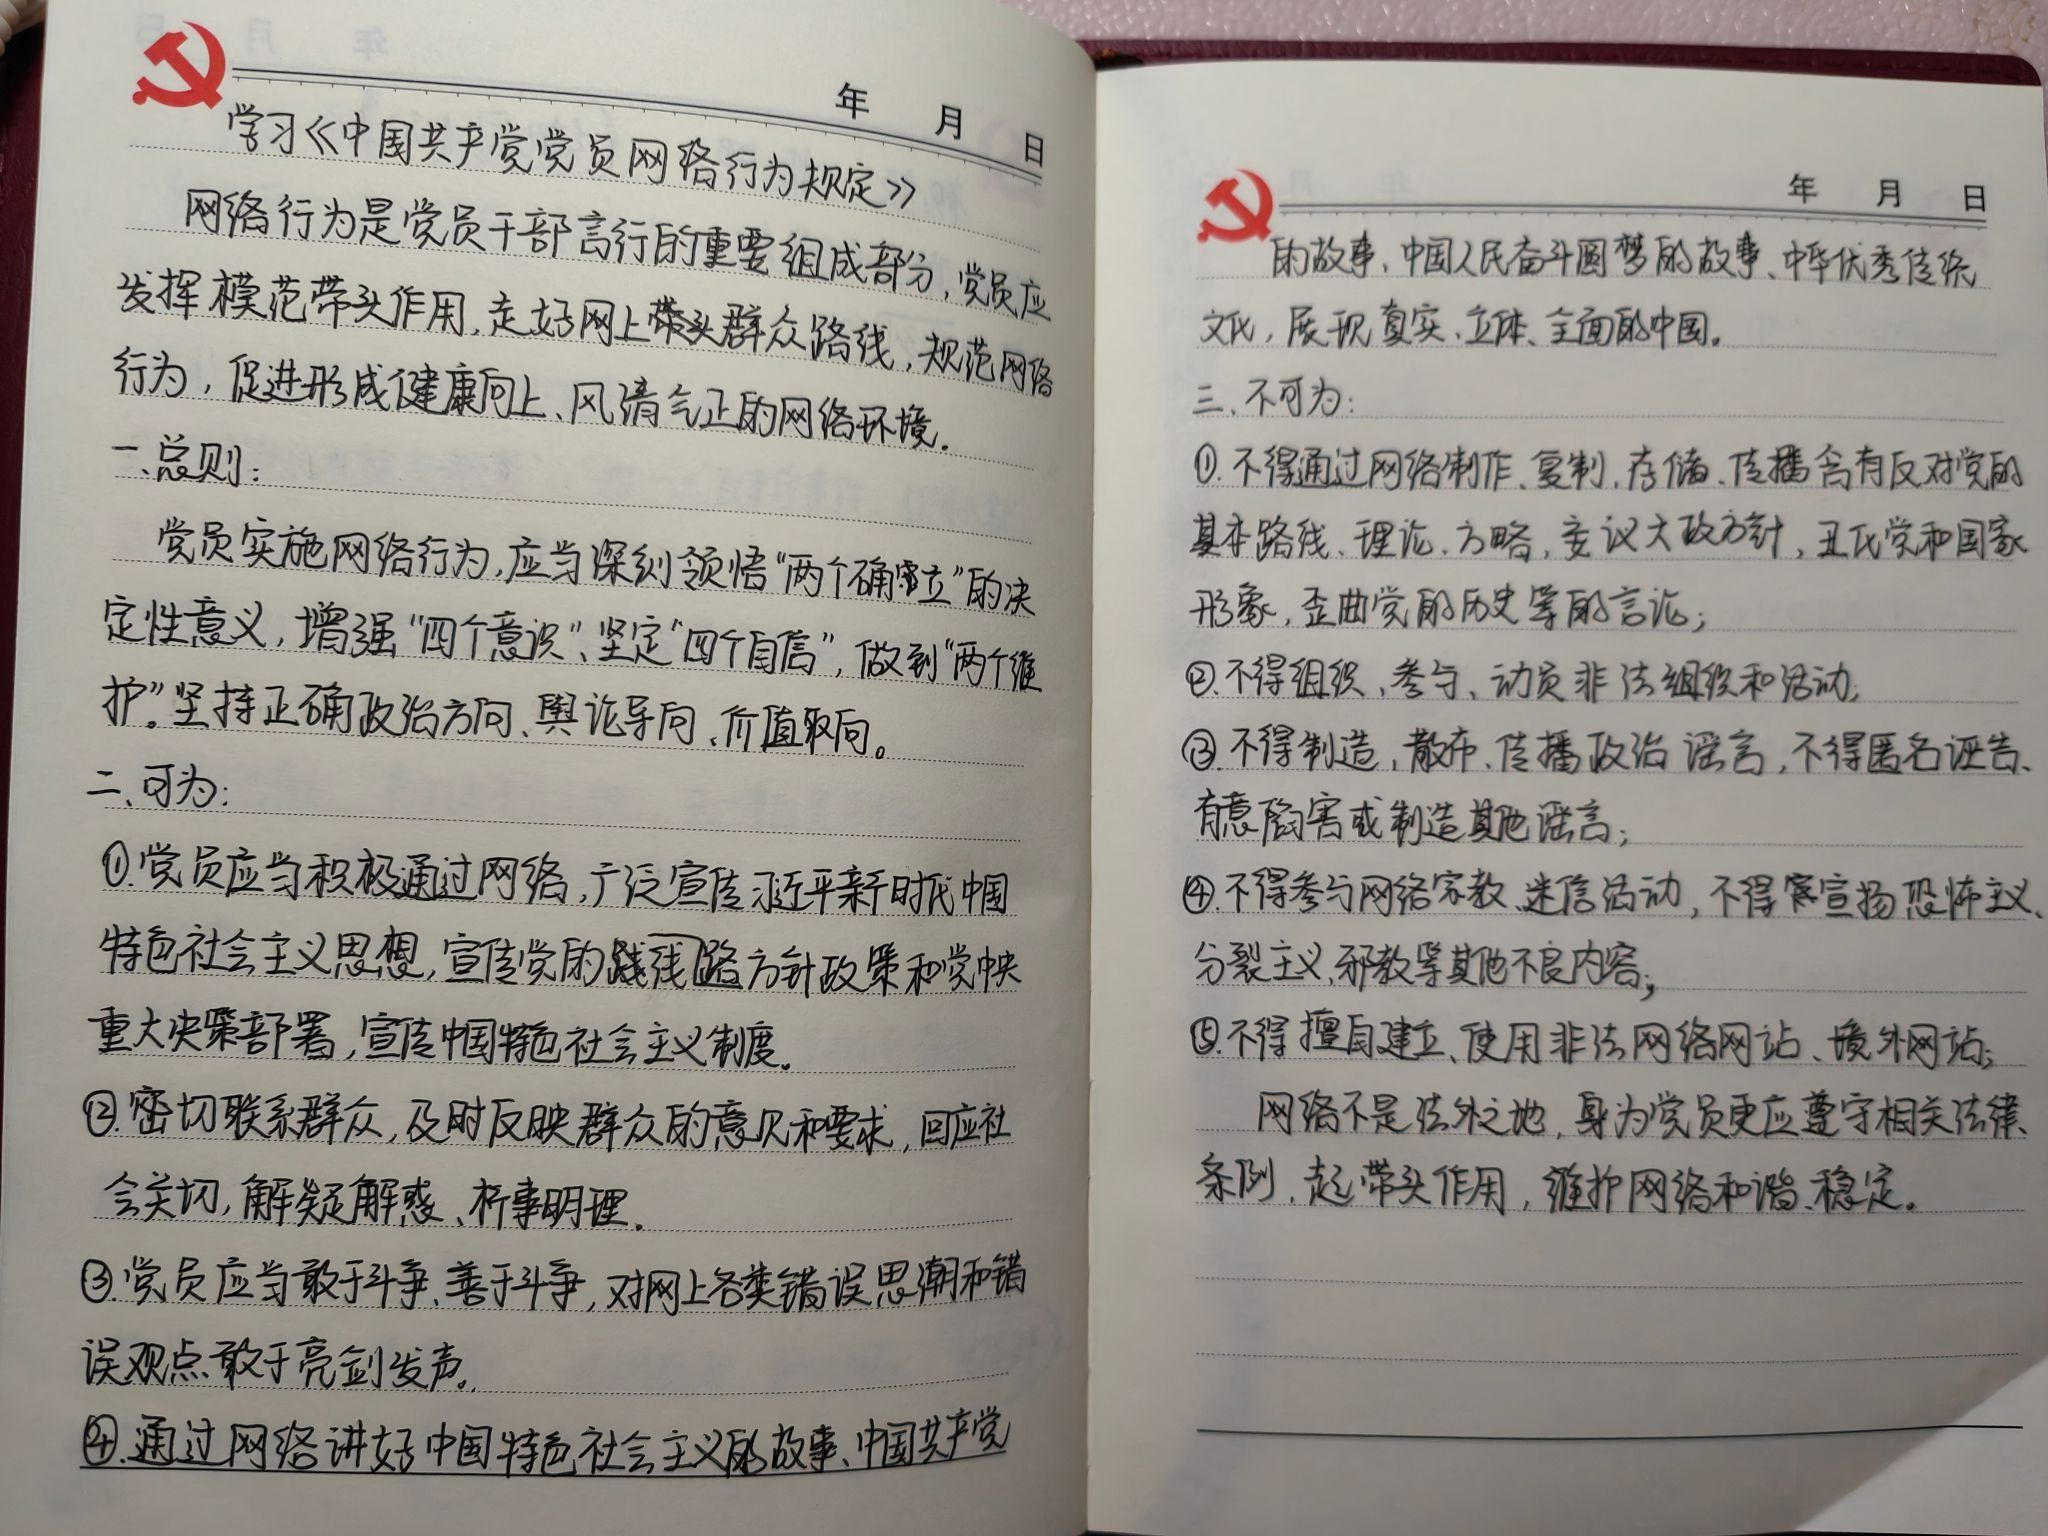 年 月 日
学习《中国共产党党员网络行为规定》
网络行为是党员干部言行的重要组成部分，党员应
发挥模范带头作用，走好网上带头群众路线，规范网络
行为，促进形成健康向上、风清气正的网络环境。
一、总则：
党员实施网络行为，应当深刻领悟“两个确立”的决
定性意义，增强“四个意识”、坚定“四个自信”，做到“两个维
护”。坚持正确政治方向、舆论导向、价值取向。
二、可为：
①.党员应当积极通过网络，广泛宣传习近平新时代中国
特色社会主义思想，宣传党的线路方针政策和党中央
重大决策部署，宣传中国特色社会主义制度。
②.密切联系群众，及时反映群众的意见和要求，回应社
会关切，解疑解惑、析事明理。
③.党员应当敢于斗争、善于斗争，对网上各类错误思潮和错
误观点敢于亮剑发声。
④.通过网络讲好中国特色社会主义的故事、中国共产党
年 月 日
的故事、中国人民奋斗圆梦的故事、中华优秀传统
文化，展现真实、立体、全面的中国。
三、不可为：
①.不得通过网络制作、复制、存储、传播含有反对党的
基本路线、理论、方略，妄议大政方针，丑化党和国家
形象，歪曲党的历史等的言论；
②.不得组织、参与、动员非法组织和活动；
③.不得制造、散布、传播政治谣言，不得匿名诬告、
有意陷害或制造其他谣言；
④.不得参与网络宗教、迷信活动，不得宣扬恐怖主义、
分裂主义、邪教等其他不良内容；
⑤.不得擅自建立、使用非法网络网站、境外网站；
网络不是法外之地，身为党员更应遵守相关法律、
条例，起带头作用，维护网络和谐、稳定。